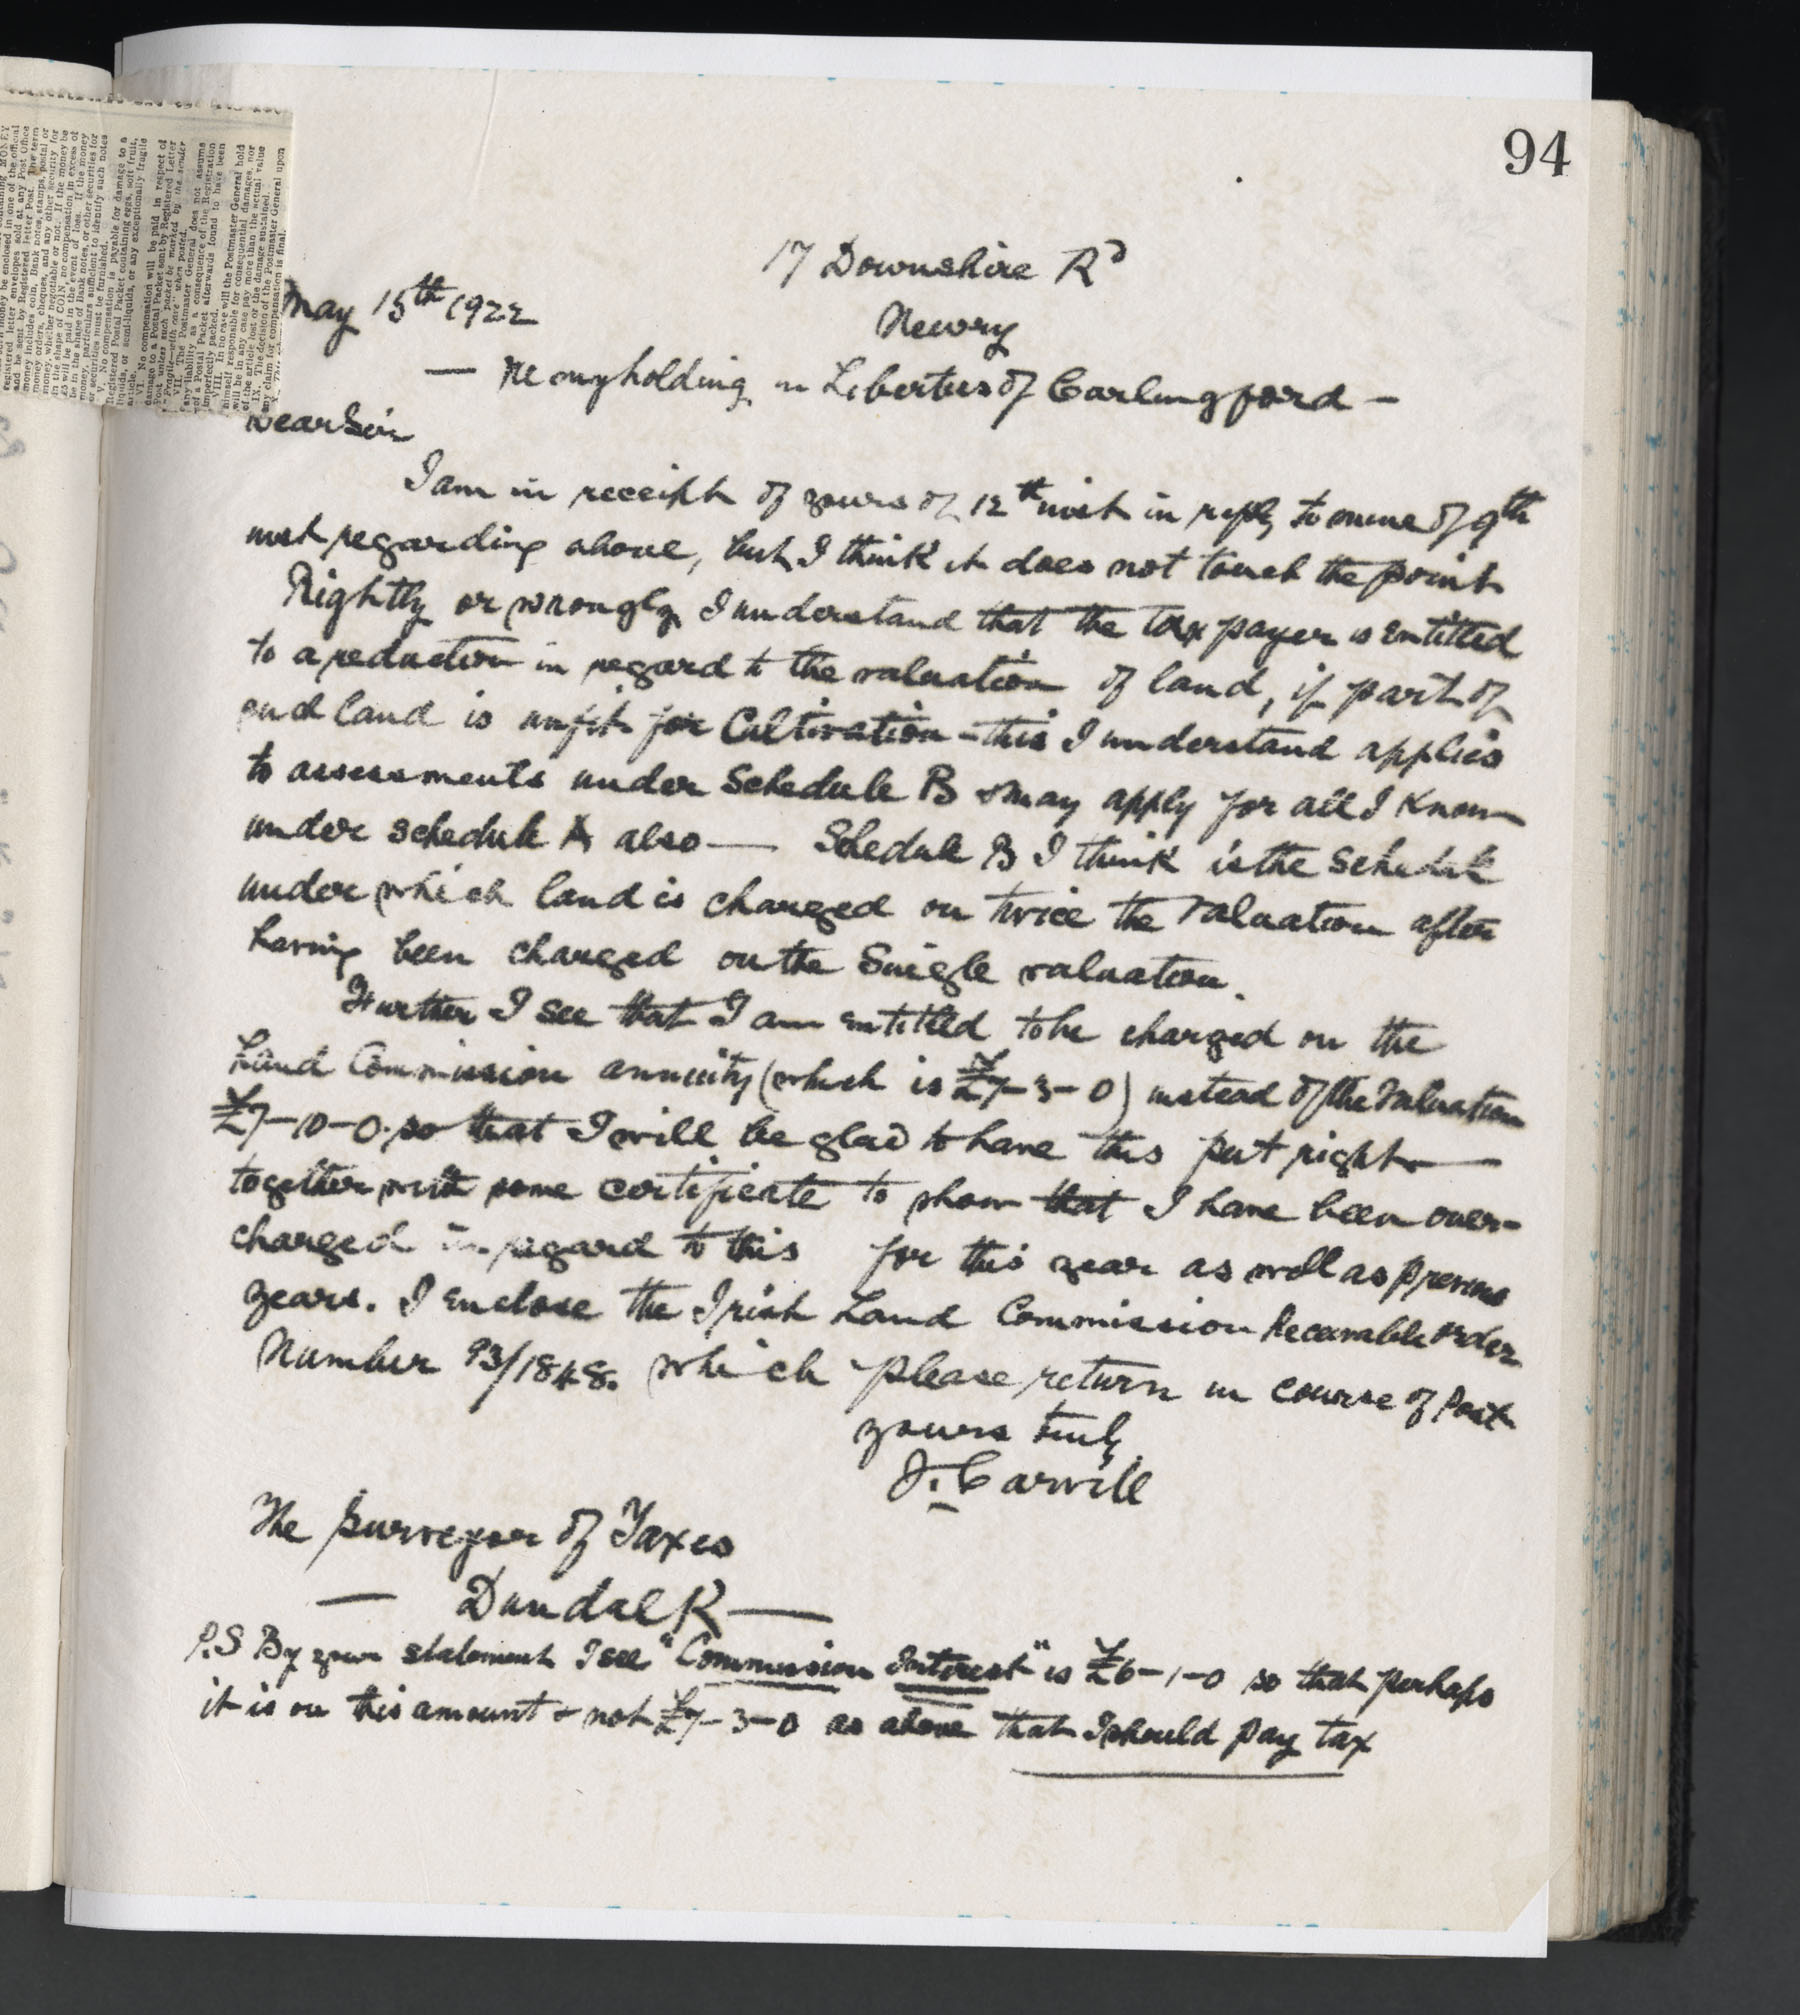 94
17 Downshire Rd
May 15th 1922
Newry
— Re my holding in Liberties of Carlingford —
Dear Sir
I am in receipt of yours of 12th inst in reply to mine of 9th
inst regarding above, but I think it does not touch the point
Rightly or wrongly I understand that the tax payer is entitled
to a reduction in regard to the valuation of land, if part of
said land is unfit for Cultivation - this I understand applies
to assessments under Schedule B & may apply for all I know
under schedule A also — Schedule B I think is the schedule
under which land is charged on twice the valuation after
having been charged on the Single valuation.
Further I see that I am entitled to be charged on the
Land Commission annuity (which is £7-3-0) instead of the Valuation
£7-10-0. so that I will be glad to have this put right —
together with some certificate to show that I have been over-
charged in regard to this for this year as well as previous
years. I enclose the Irish Land Commission Receivable order
Number 93/1848. which please return in course of Post
yours truly
J. Carvill
The Surveyor of Taxes
— Dundalk —
P.S By your statement I see "Commission Interest" is £6-1-0 so that perhaps
it is on this amount & not £7-3-0 as above that I should pay tax
registered letter envelopes sold at any Post Office
and be sent by Registered letter Post. The term
money includes coin, Bank notes, stamps, postal or
money orders, cheques, and any other security for
money, whether negotiable or not. If the money be
in the shape of COIN, no compensation in excess of
£5 will be paid in the event of loss. If the money
be in the shape of Bank notes, or other securities for
money, particulars sufficient to identify such notes
or securities must be furnished.
V. No compensation is payable for damage to a
Registered Postal Packet containing eggs, soft fruit,
liquids, or semi-liquids, or any exceptionally fragile
article.
VI. No compensation will be paid in respect of
damage to a Postal Packet sent by Registered Letter
Post unless such packet be marked by the sender
"Fragile—with care" when posted.
VII. The Postmaster General does not assume
any liability as a consequence of the Registration
of a Postal Packet afterwards found to have been
imperfectly packed.
VIII. In no case will the Postmaster General hold
himself responsible for consequential damages, nor
will he in any case pay more than the actual value
of the article lost or the damage sustained.
IX. The decision of the Postmaster General upon
any claim for compensation is final.